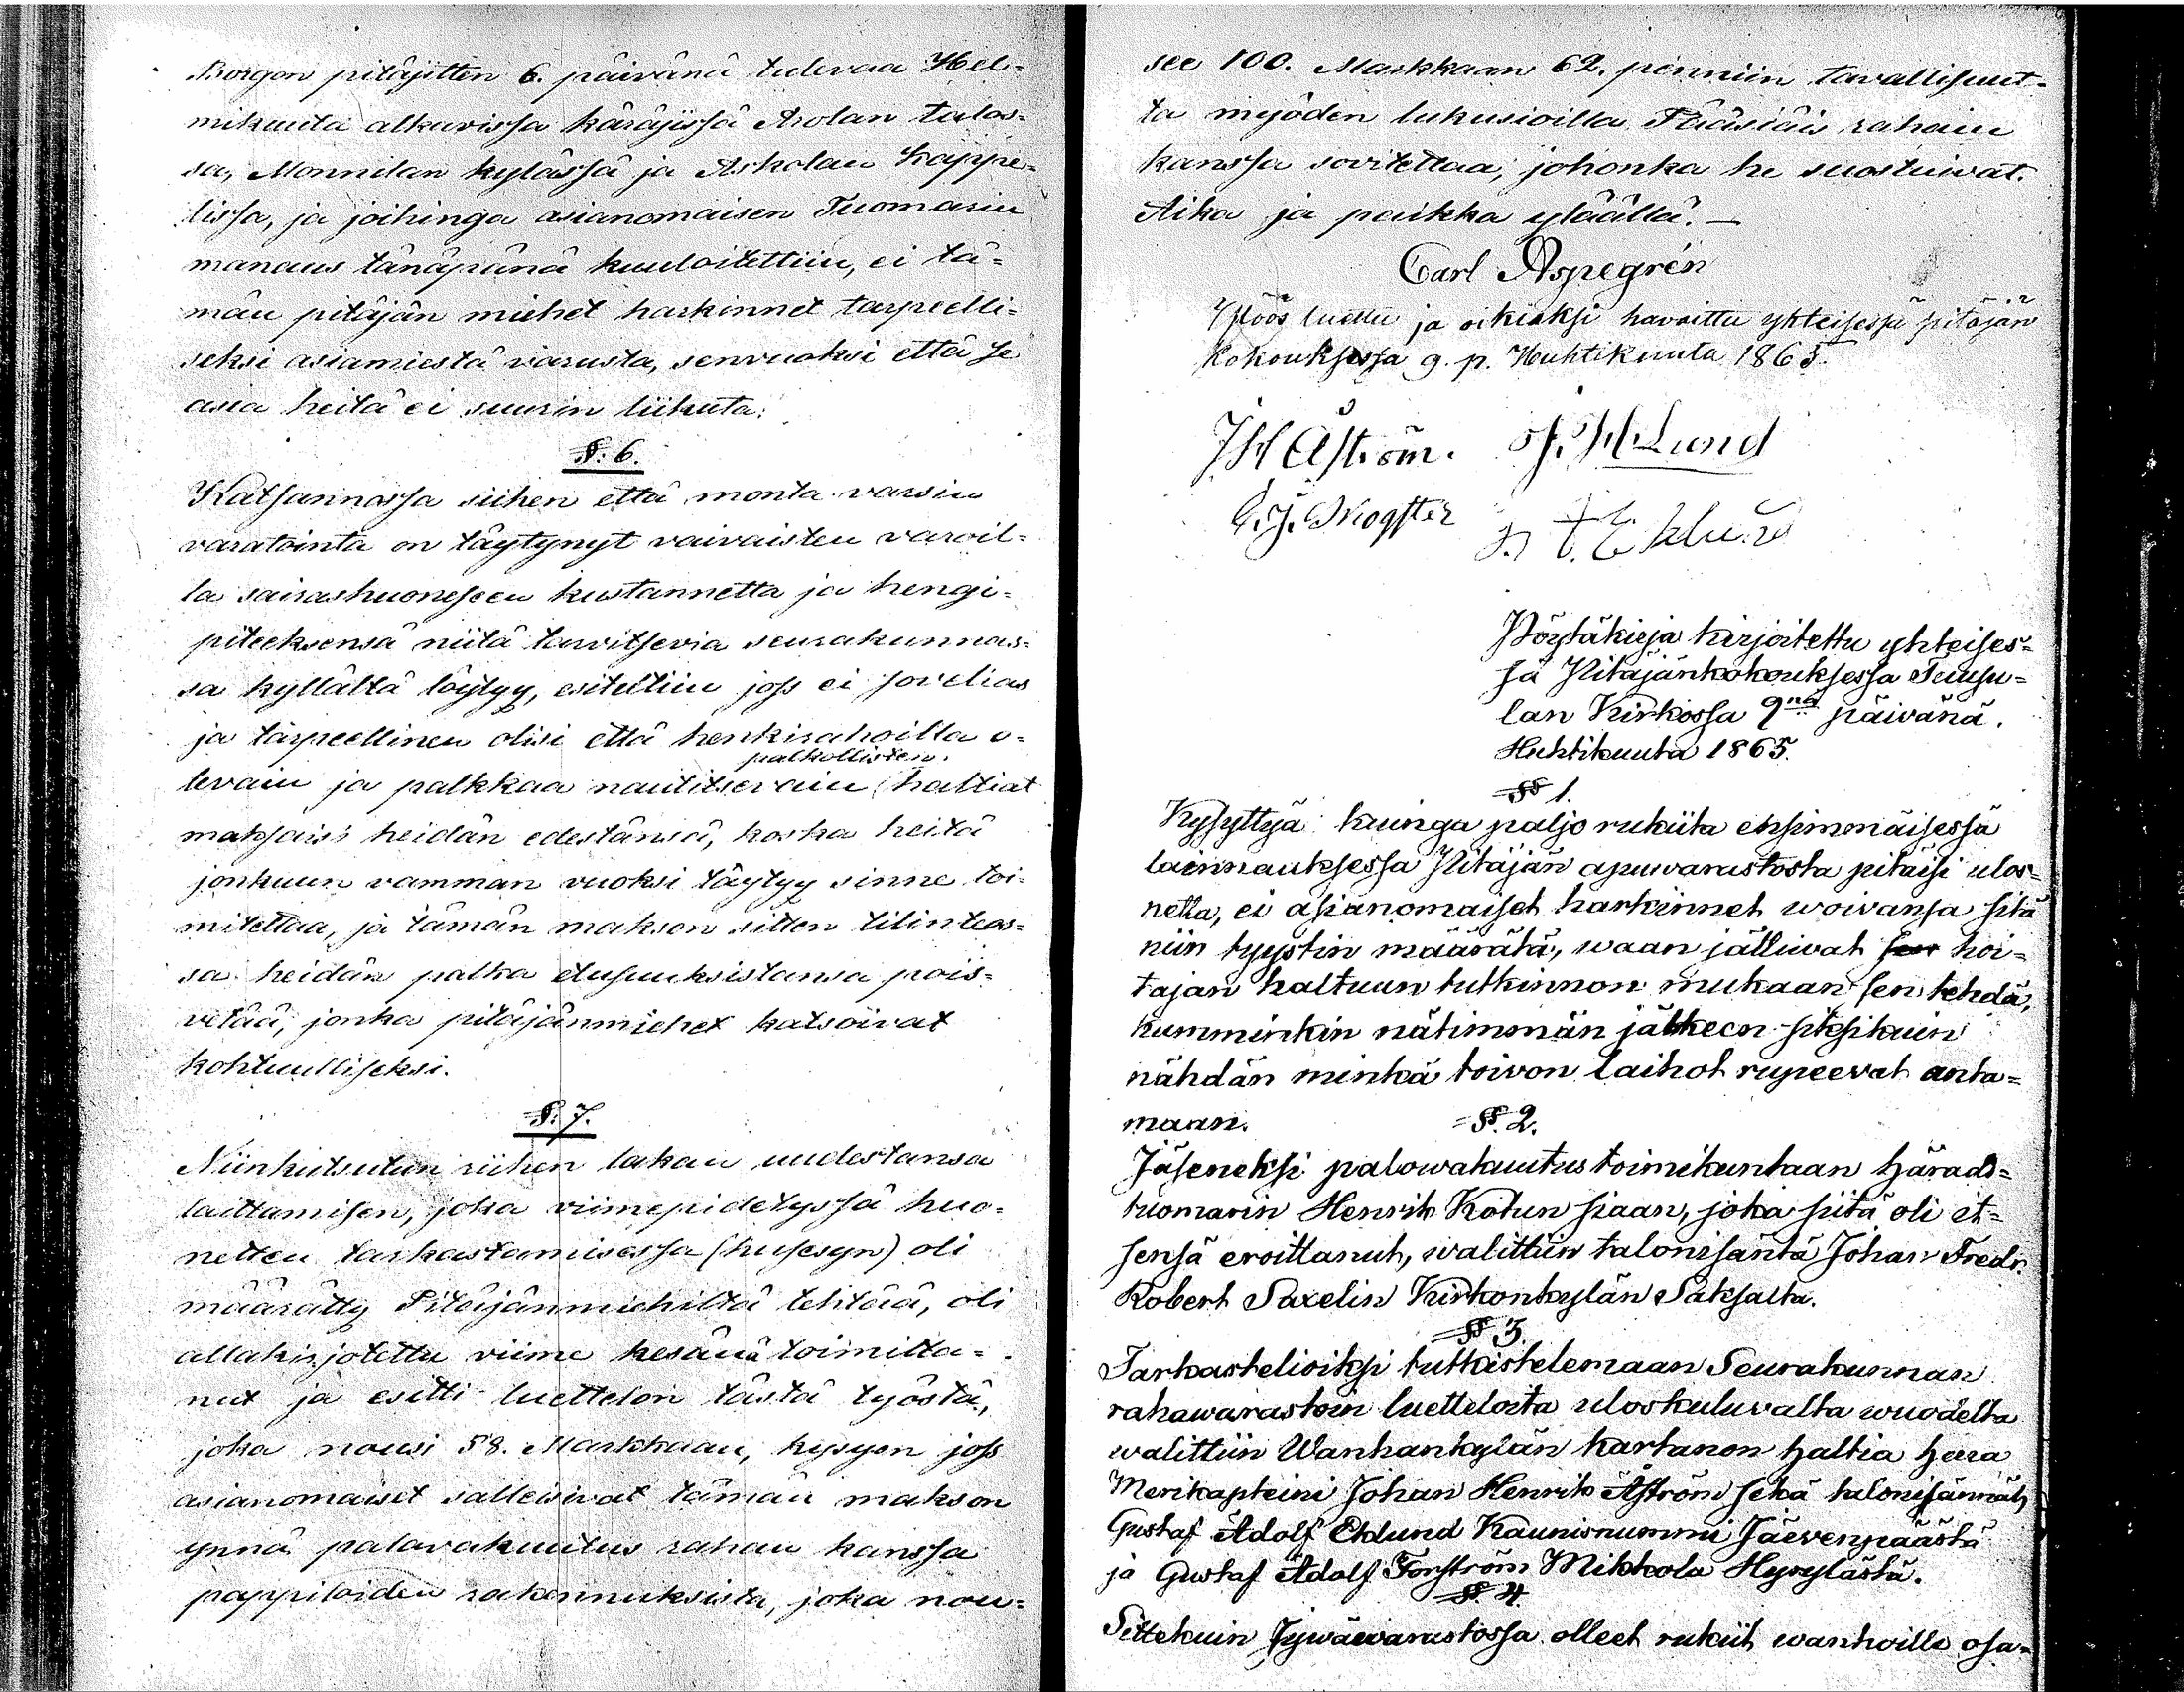 Borgon pitäjitten 6. päivänä tulevaa Hel=
mikuuta alkavissa käräjissä Arolan talos=
sa, Monnilan kylässä ja Askolan Kappe=
lissa, ja joihinga asianomaisen Tuomarin
manaus tänäpänä kuuloitettiin, ei tä=
män pitäjän miehet harkinnet tarpeelli=
seksi asiamiestä varusta, senvuoksi että se
asia heitä ei suurin liikuta.
§. 6.
Katsannossa siihen että monta varsin
varatointa on täytynyt vaivaisten varoil=
la sairashuoneseen kustannetta ja hengi=
piteeksensä niitä tarvitsevia seurakunnas=
sa kyllältä löytyy, esitettiin joss ei sovelias
ja tarpeellinen olisi että henkirahoilla o=
palkollisten.
levain ja palkkaa nautitsevain haltiat
maksaisi heidän edestänsä, koska heitä
jonkuun vamman vuoksi täytyy sinne toi=
mitettaa, ja tämän makson sitten tilinteos=
sa heidän palka etusuuksistansa pois=
vetää, jonka pitäjänmiehet katsoivat
kohtuulliseksi.
§. 7.
Niinkutsutun riihen lakan uudestansa
laittamisen, joka viimepidetyssä huo=
netten tarkastamisessa (husesyn) oli
määrätty Pitäjänmiehiltä tehtää, oli
allakirjotettu viime kesänä toimitta=
nut ja esitti luettelon tästä työstä,
joka nousi 58. Markkaan, kysyen joss
asianomaiset salleisivat tämän makson
ynnä palovakuutus rahan kanssa
pappiloiden rakennuksista, joka nou=
see 100. Markkaan 62. penniin tavallisuut=
ta myöden lukusioilla Pääsiäis rahain
kanssa sovitettaa, johonka he suostuivat.
Aika ja paikka ylläällä. —
Carl Aspegrén
Ylöös luettu ja oikiaksi havaittu ykteisessä pitäjän
kokouksessa 9. p. Huhtikuuta 1865.
J H Åström. J. H Lund
C. J. Skogster G. A. Eklund
Pöytäkirja kirjoitettu yhteises=
sä Pitäjänkokouksessa Tuusu=
lan Kirkossa 9nä päivänä.
Huhtikuuta 1865.
§ 1.
Kysyttyä kuinga paljo rukiita ensimmäisessä
lainnauksessa Pitäjän apuvarastosta pitäisi ulos=
netta, ei asianomaiset harkinnet woivansa sitä
niin tyystin määrätä, waan jättiwat hoi=
tajan haltuun tutkinnon mukaan sen tehdä,
kumminkin nätimmän jälkeen sitksikuin
nähdän minkä toivon laihot rupeevat anta=
maan.
§. 2.
Jäseneksi palowakuutus toimikuntaan härads=
tuomarin Henrik Kotun siaan, joka siitä oli it=
sensä eroittanut, walittiin talonisäntä Johan Fredr.
Robert Saxelin Kirkonkylän Saksalta.
§ 3.
Tarkastelioiksi tutkistelemaan Seurakunnan
rahawarastoin luetteloita uloskuluvalta wuodelta
walittiin Wanhankylän kartanon haltia herra
Merikapteini Johan Henrik Åström sekä talonisännät,
Gustaf Adolf Eklund Kaunisnummi Jäevenpäästä
ja Gustaf Adolf Forsström Mikkola Hyrylästä.
§. 4
Sittekuin Jywäwarastossa olleet rukiit wanhoille osa=